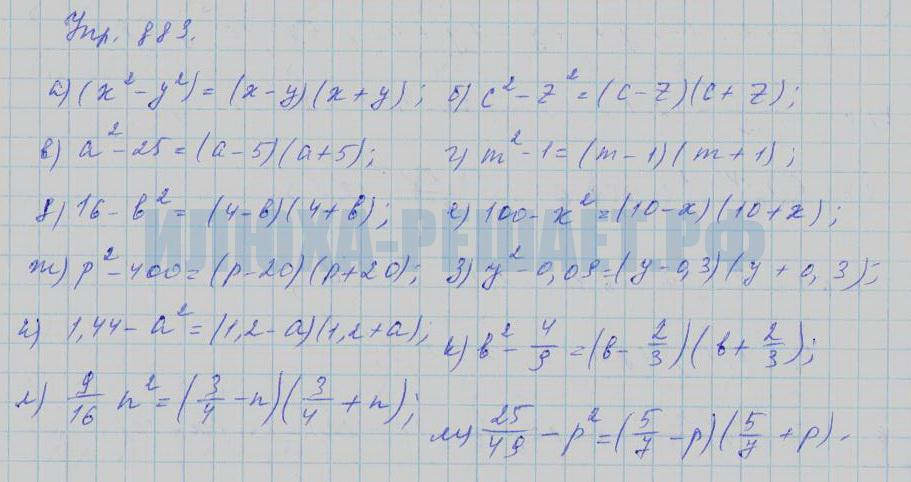 Упр. 883.
а) (x² - y²) = (x-y)(x+y); б) c² - z² = (c-z)(c+z);
в) a² - 25 = (a-5)(a+5); г) m² - 1 = (m-1)(m+1);
д) 16 - b² = (4-b)(4+b); е) 100 - x² = (10-x)(10+x);
ИЛЮХА-РЕШАЕТ.РФ
ж) p² - 400 = (p-20)(p+20); з) y² - 0,09 = (y-0,3)(y+0,3);
и) 1,44 - a² = (1,2-a)(1,2+a); к) b² - 4/9 = (b - 2/3)(b + 2/3);
л) 9/16 n² = (3/4 - n)(3/4 + n); м) 25/49 - p² = (5/7 - p)(5/7 + p).